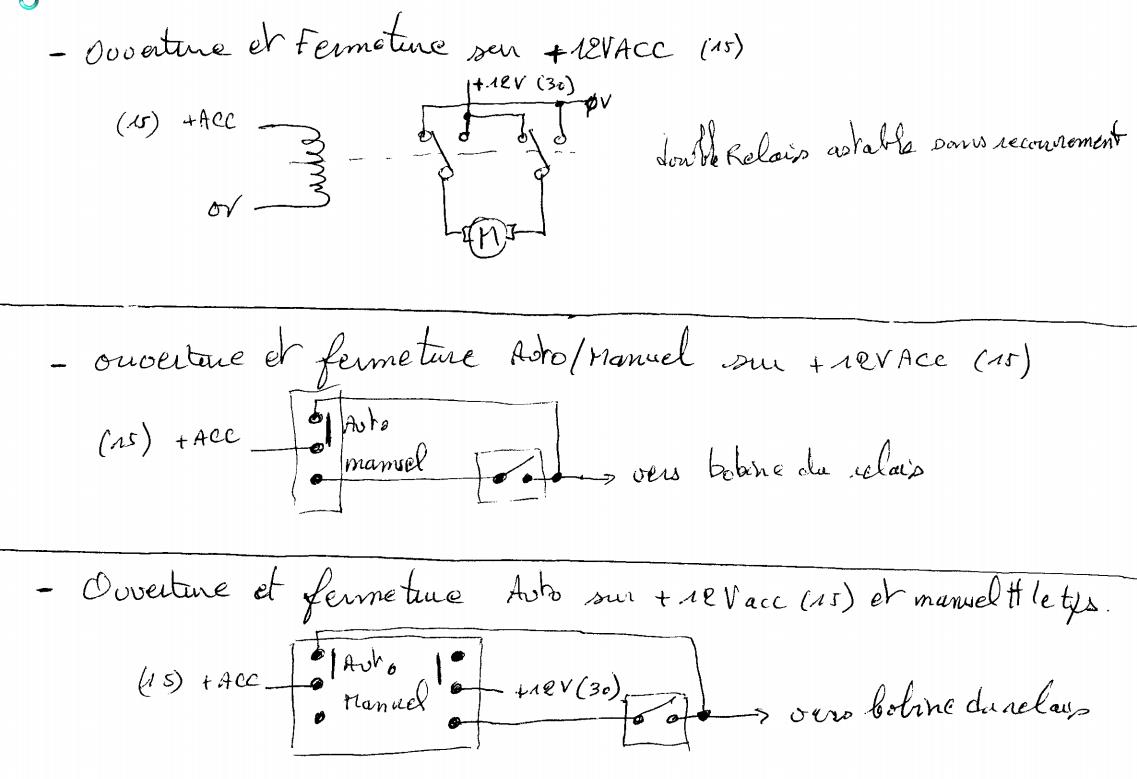 - Ouverture et Fermeture sur +12VACC (15)
+12V (30)
0V
(15) +ACC
0V
M
double Relais astable sans recouvrement
- ouverture et fermeture Auto/Manuel sur +12VAcc (15)
(15) +ACC
Auto
manuel
vers bobine du relais
- Ouverture et fermeture Auto sur +12Vacc (15) et manuel tt le tps.
(15) +ACC
Auto
Manuel
+12V(30)
vers bobine du relais